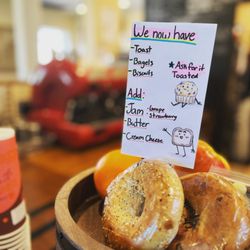 We now have
- Toast
- Bagels
- Biscuits
★ Ask for it Toasted
Add:
Jam - Grape
- Strawberry
- Butter
- Cream Cheese